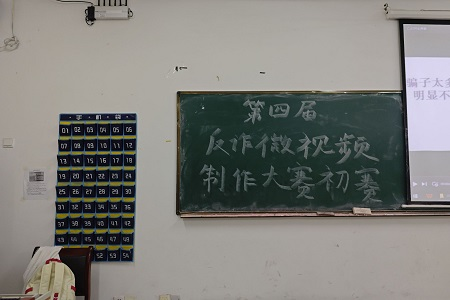 第四届
反诈微视频
制作大赛初赛
骗子太
明显不
01 02 03 04 05 06
07 08 09 10 11 12
13 14 15 16 17 18
19 20 21 22 23 24
25 26 27 28 29 30
31 32 33 34 35 36
37 38 39 40 41 42
43 44 45 46 47 48
52 53 54